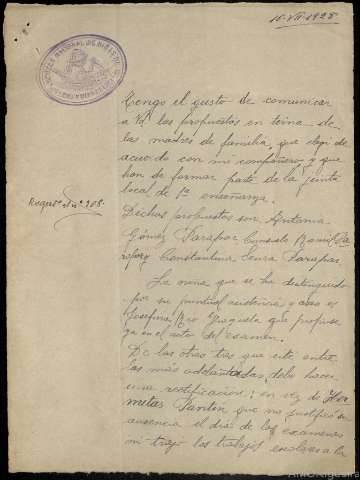 15-VII-1928
ESCUELA NACIONAL DE NIÑAS
Tengo el gusto de comunicar
a Vd. las propuestas en terna de
las madres de familia, que elegí de
acuerdo con mi compañero, y que
han de formar parte de la junta
local de 1ª enseñanza.
Regtº Nº 208.
Dichas propuestas son Antonia
Gómez Farapar Consuelo
y Constantina Senra Farapar
La niña que se ha distinguido
por su puntual asistencia y aseo es
Josefina que propuse
ya en el acto del examen.
De las otras tres que cité entre
las más adelantadas, debo hacer
una rectificación; en vez de
Santin que no justificó su
ausencia el día de los exámenes
ni trajo los trabajos escolares a la